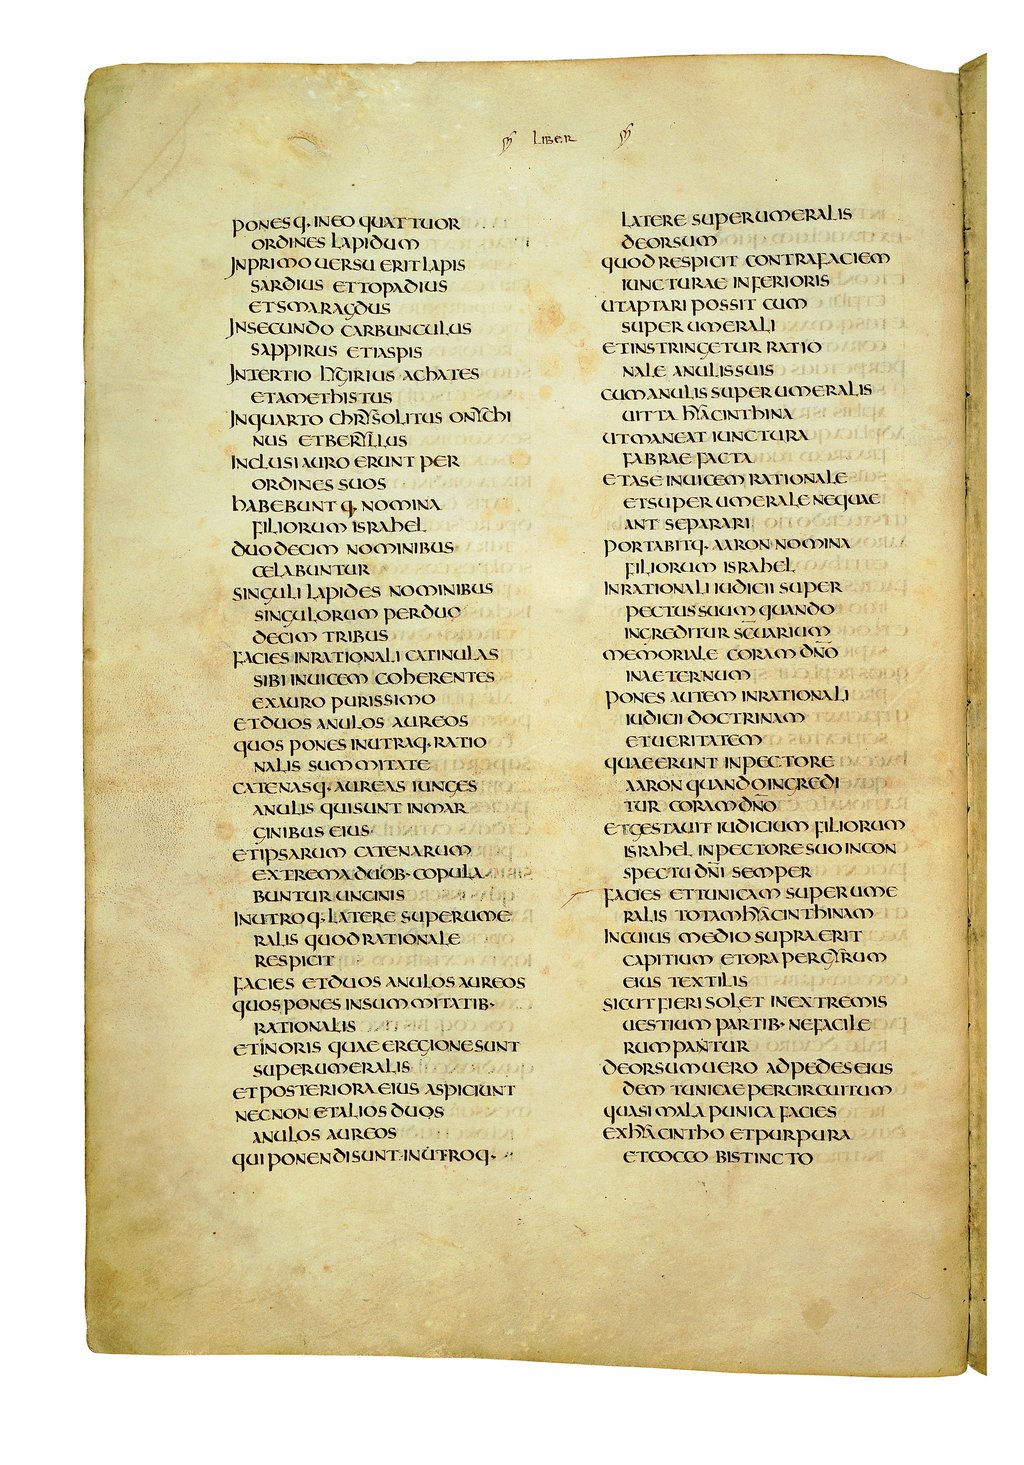 LIBER
PONESQ· INEO QUATTUOR
ORDINES LAPIDUM
INPRIMO UERSU ERIT LAPIS
SARDIUS ET TOPADIUS
ET SMARAGDUS
INSECUNDO CARBUNCULUS
SAPPIRUS ET IASPIS
INTERTIO LYGIRIUS ACHATES
ET AMETHISTUS
INQUARTO CHRYSOLITUS ONYCHI
NUS ET BERYLLUS
INCLUSI AURO ERUNT PER
ORDINES SUOS
HABEBUNTQ· NOMINA
FILIORUM ISRAHEL
DUODECIM NOMINIBUS
CELABUNTUR
SINGULI LAPIDES NOMINIBUS
SINGULORUM PER DUO
DECIM TRIBUS
FACIES INRATIONALI CATINULAS
SIBI INUICEM COHERENTES
EX AURO PURISSIMO
ET DUOS ANULOS AUREOS
QUOS PONES INUTRAQ· RATIO
NALIS SUMMITATE
CATENASQ· AUREAS IUNGES
ANULIS QUI SUNT INMAR
GINIBUS EIUS
ET IPSARUM CATENARUM
EXTREMA DUOB· COPULA
BUNTUR UNCINIS
INUTROQ· LATERE SUPERUME
RALIS QUOD RATIONALE
RESPICIT
FACIES ET DUOS ANULOS AUREOS
QUOS PONES INSUMMITATIB·
RATIONALIS
ET INORIS QUAE E REGIONE SUNT
SUPERUMERALIS
ET POSTERIORA EIUS ASPICIUNT
NECNON ET ALIOS DUOS
ANULOS AUREOS
QUI PONENDI SUNT INUTROQ·
LATERE SUPERUMERALIS
DEORSUM
QUOD RESPICIT CONTRA FACIEM
IUNCTURAE INFERIORIS
UT APTARI POSSIT CUM
SUPERUMERALI
ET INSTRINGETUR RATIO
NALE ANULIS SUIS
CUM ANULIS SUPERUMERALIS
UITTA HYACINTHINA
UT MANEAT IUNCTURA
FABRAE FACTA
ET A SE INUICEM RATIONALE
ET SUPERUMERALE NEQUAE
ANT SEPARARI
PORTABITQ· AARON NOMINA
FILIORUM ISRAHEL
INRATIONALI IUDICII SUPER
PECTUS SUUM QUANDO
INGREDITUR SC̅UARIUM
MEMORIALE CORAM DN̅O
INAETERNUM
PONES AUTEM INRATIONALI
IUDICII DOCTRINAM
ET UERITATEM
QUAE ERUNT INPECTORE
AARON QUANDO INGREDI
TUR CORAM DN̅O
ET GESTAUIT IUDICIUM FILIORUM
ISRAHEL INPECTORE SUO INCON
SPECTU DN̅I SEMPER
FACIES ET TUNICAM SUPERUME
RALIS TOTAM HYACINTHINAM
INCUIUS MEDIO SUPRA ERIT
CAPITIUM ET ORA PER GYRUM
EIUS TEXTILIS
SICUT FIERI SOLET INEXTREMIS
UESTIUM PARTIB· NE FACILE
RUMPANTUR
DEORSUM UERO AD PEDES EIUS
DEM TUNICAE PER CIRCUITUM
QUASI MALA PUNICA FACIES
EX HYACINTHO ET PURPURA
ET COCCO BIS TINCTO